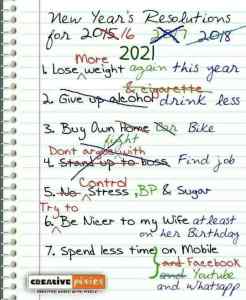 New Year's Resolutions
for 2015 16 2017 2018
2021
More
1. Lose weight again this year
& cigarette
2. Give up alcohol drink less
3. Buy Own Home Car Bike
fight
Dont argue with
4. Stand up to boss Find job
Control
5. No Stress, BP & Sugar
Try to
6. Be Nicer to my Wife at least
on her Birthday
7. Spend less time on Mobile
and Facebook
and Youtube
and whatsapp
CREATIVE pixies